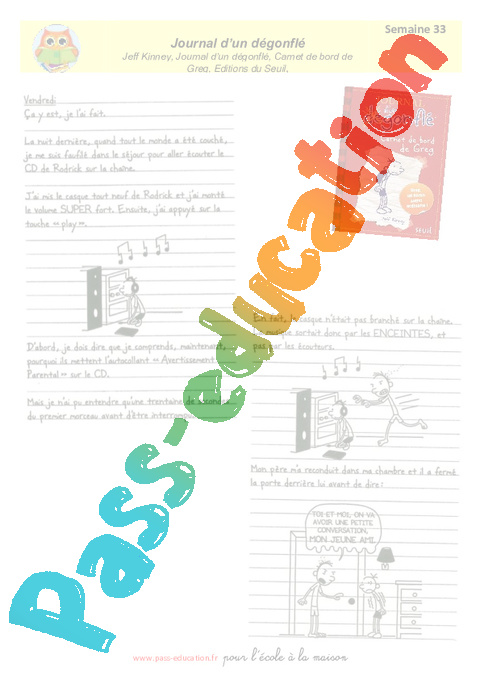 Semaine 33
Journal d'un dégonflé
Jeff Kinney, Journal d'un dégonflé, Carnet de bord de
Greg. Editions du Seuil.
Vendredi
Ça y est, je l'ai fait.
La nuit dernière, quand tout le monde a été couché,
je me suis faufilé dans le séjour pour aller écouter le
CD de Rodrick sur la chaîne.
J'ai mis le casque tout neuf de Rodrick et j'ai monté
le volume SUPER fort. Ensuite, j'ai appuyé sur la
touche « play ».
D'abord, je dois dire que je comprends, maintenant,
pourquoi ils mettent l'autocollant « Avertissement
Parental » sur le CD.
Mais je n'ai pu entendre qu'une trentaine de secondes
du premier morceau avant d'être interrompu.
dégonflé
Carnet de bord
de Greg
Jeff Kinney
SEUIL
En fait, le casque n'était pas branché sur la chaîne.
La musique sortait donc par les ENCEINTES, et
pas par les écouteurs.
Mon père m'a reconduit dans ma chambre et il a fermé
la porte derrière lui avant de dire :
TOI-ET-MOI, ON VA
AVOIR UNE PETITE
CONVERSATION,
MON JEUNE AMI.
Pass-education
www.pass-education.fr pour l'école à la maison